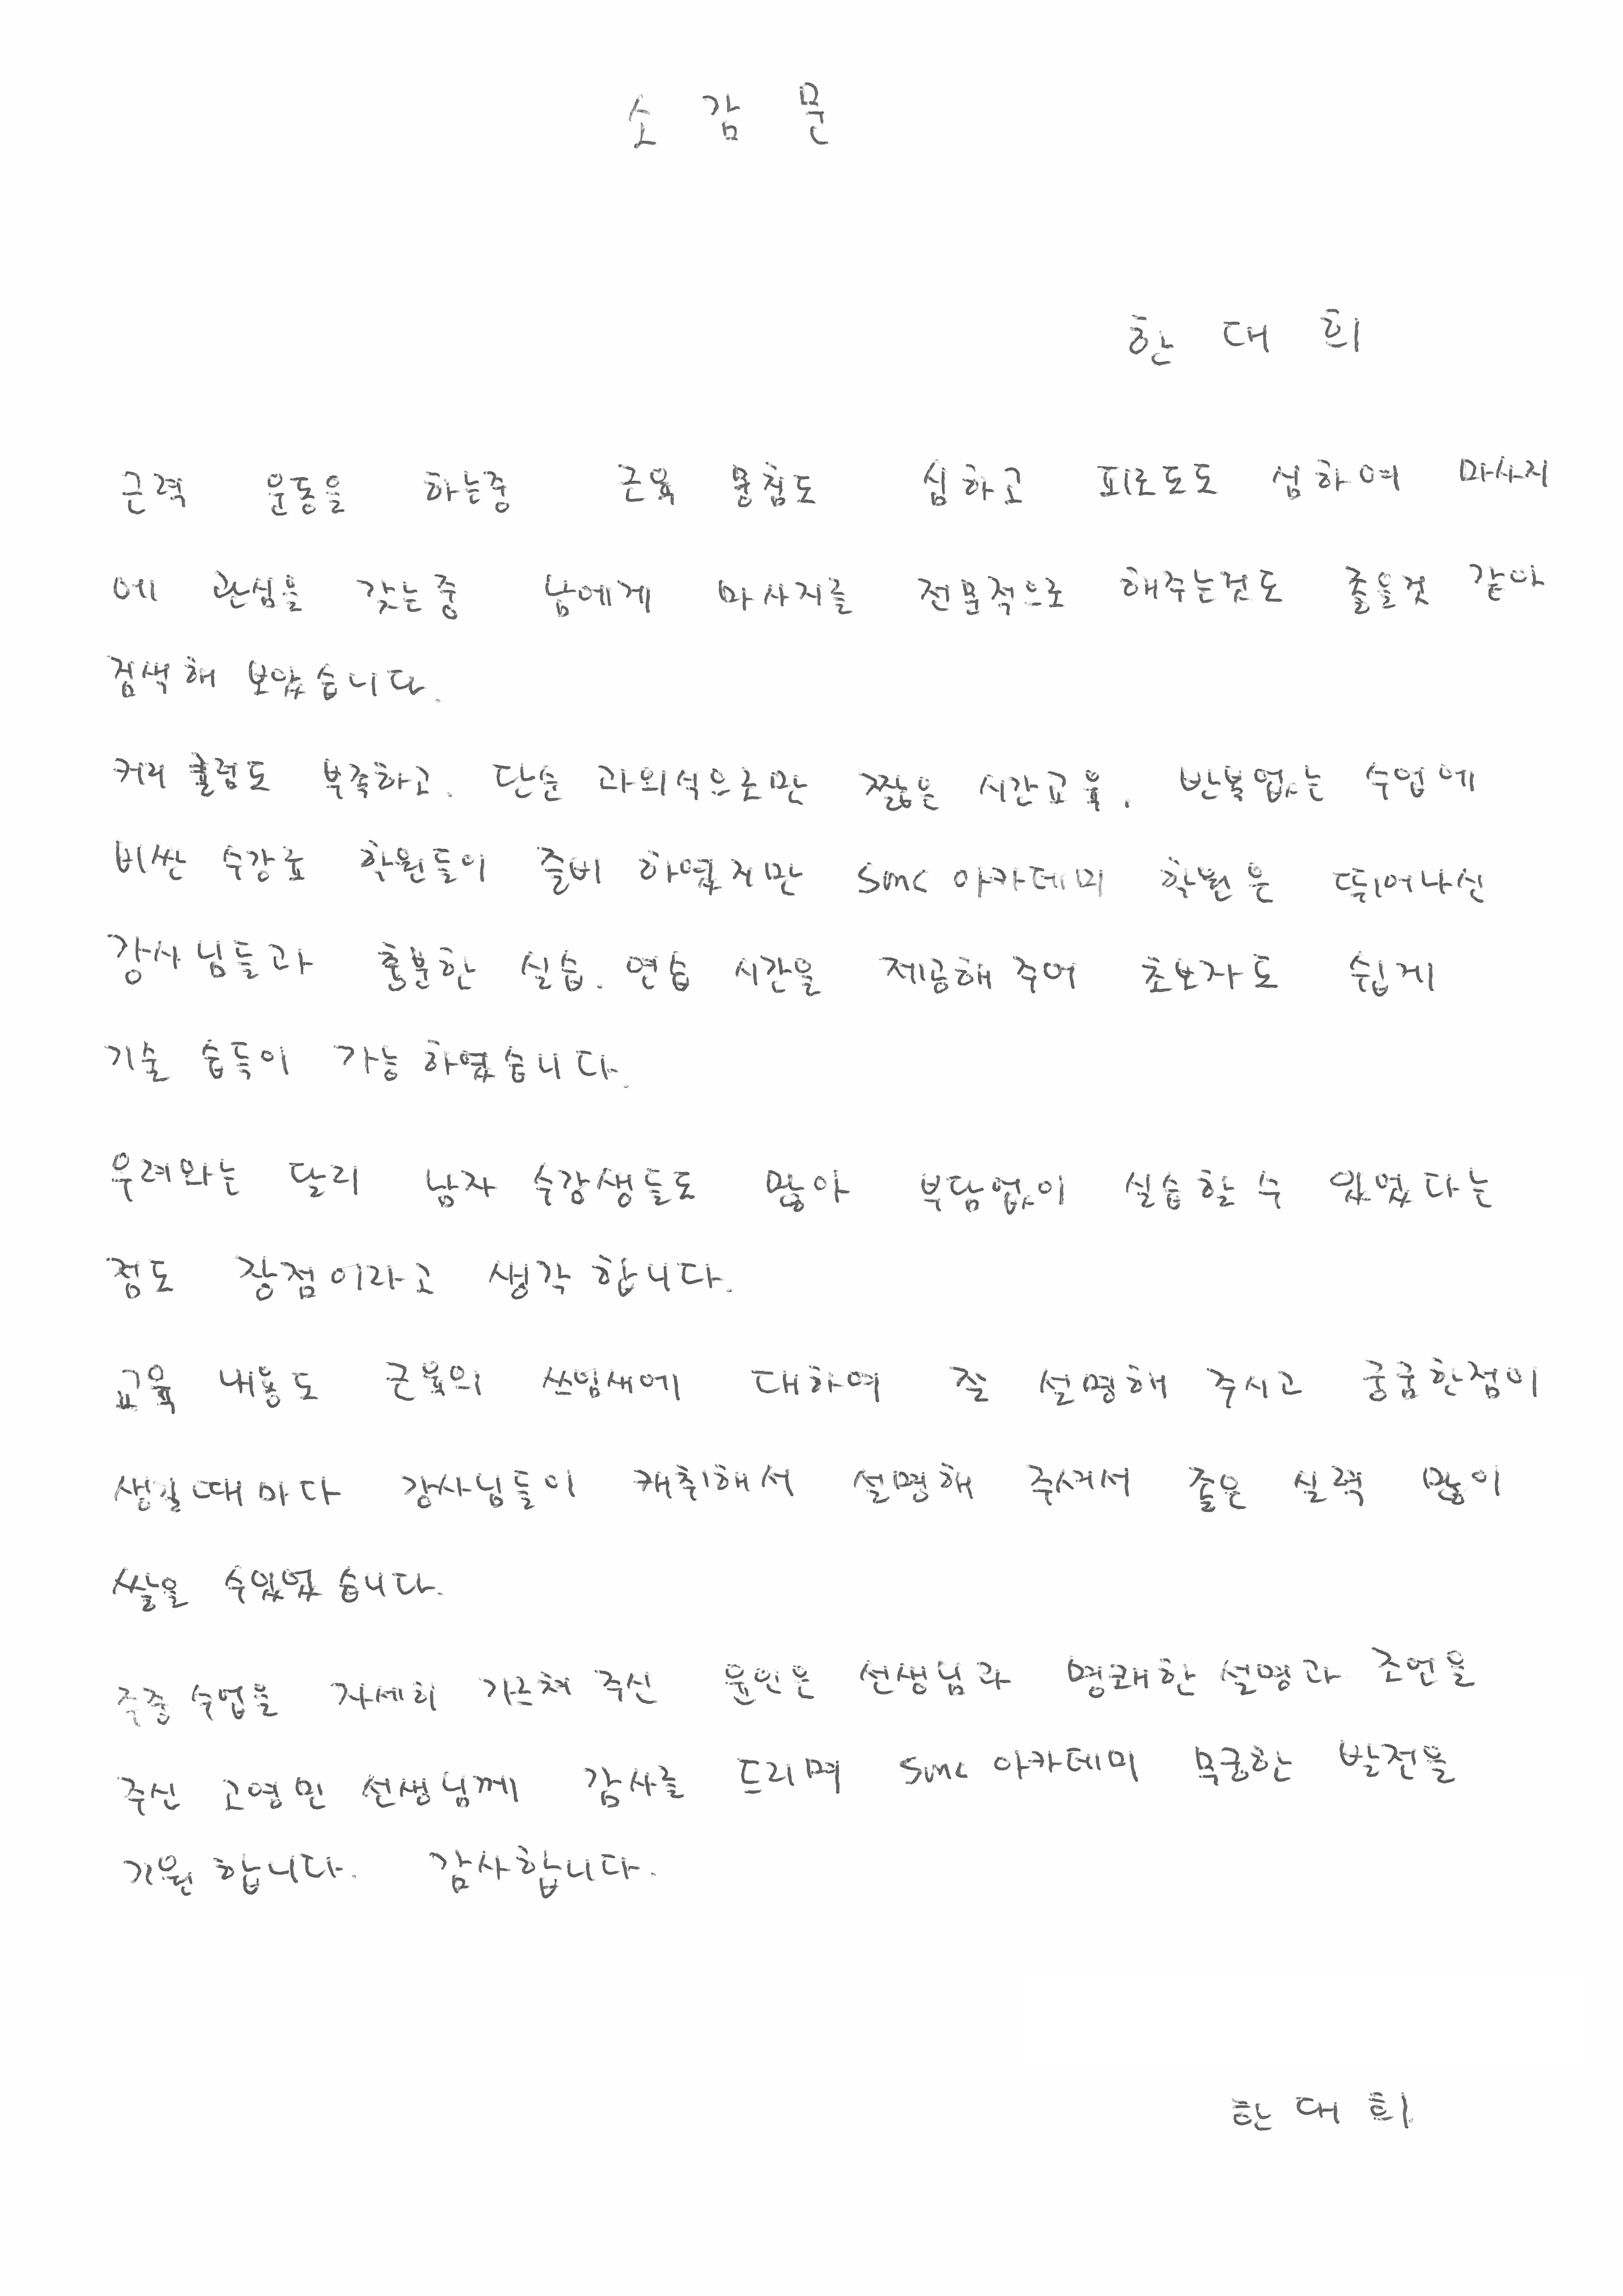 소 감 문
한 대 희
근력 운동을 하는중 근육 뭉침도 심하고 피로도도 심하여 마사지
에 관심을 갖는중 남에게 마사지를 전문적으로 해주는것도 좋을것 같아
검색해 보았습니다.
커리큘럼도 부족하고. 단순 과외식으로만 짧은 시간교육, 반복없는 수업에
비싼 수강료 학원들이 즐비 하였지만 SMC 아카데미 학원은 뛰어나신
강사님들과 충분한 실습. 연습 시간을 제공해 주어 초보자도 쉽게
기술 습득이 가능 하였습니다.
우려와는 달리 남자 수강생들도 많아 부담없이 실습할 수 있었다는
점도 장점이라고 생각 합니다.
교육 내용도 근육의 쓰임새에 대하여 잘 설명해 주시고 궁굼한점이
생길때마다 강사님들이 캐취해서 설명해 주셔서 좋은 실력 많이
쌓을 수있었습니다.
주중 수업을 자세히 가르쳐 주신 윤인은 선생님과 명쾌한 설명과 조언을
주신 고영민 선생님께 감사를 드리며 SMC 아카데미 무궁한 발전을
기원 합니다. 감사합니다.
한 대 희